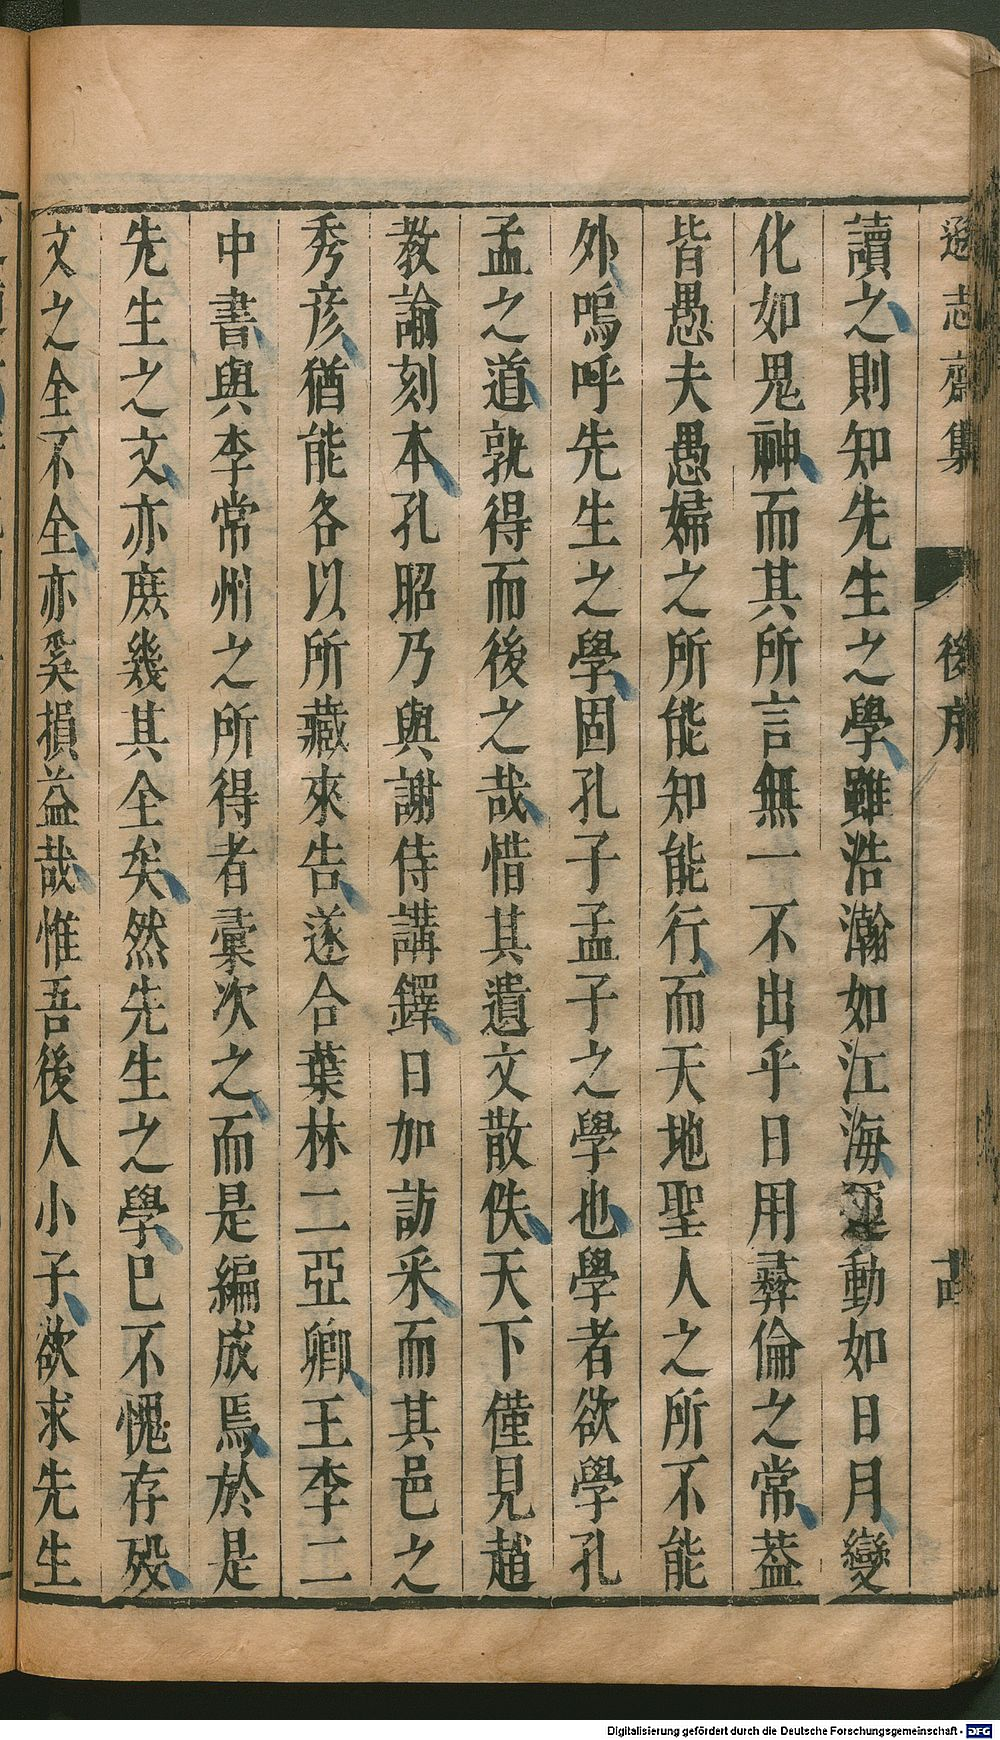 遜志齋集
後序
讀之則知先生之學雖浩瀚如江海運動如日月變
化如鬼神而其所言無一不出乎日用彞倫之常葢
皆愚夫愚婦之所能知能行而天地聖人之所不能
外嗚呼先生之學固孔子孟子之學也學者欲學孔
孟之道孰得而後之哉惜其遺文散佚天下僅見趙
教諭刻本孔昭乃與謝侍講鐸日加訪釆而其邑之
秀彦猶能各以所藏來告遂合葉林二亞卿王李二
中書與李常州之所得者彙次之而是編成焉於是
先生之文亦庶幾其全矣然先生之學已不愧存殁
文之全不全亦奚損益哉惟吾後人小子欲求先生
Digitalisierung gefördert durch die Deutsche Forschungsgemeinschaft - DFG